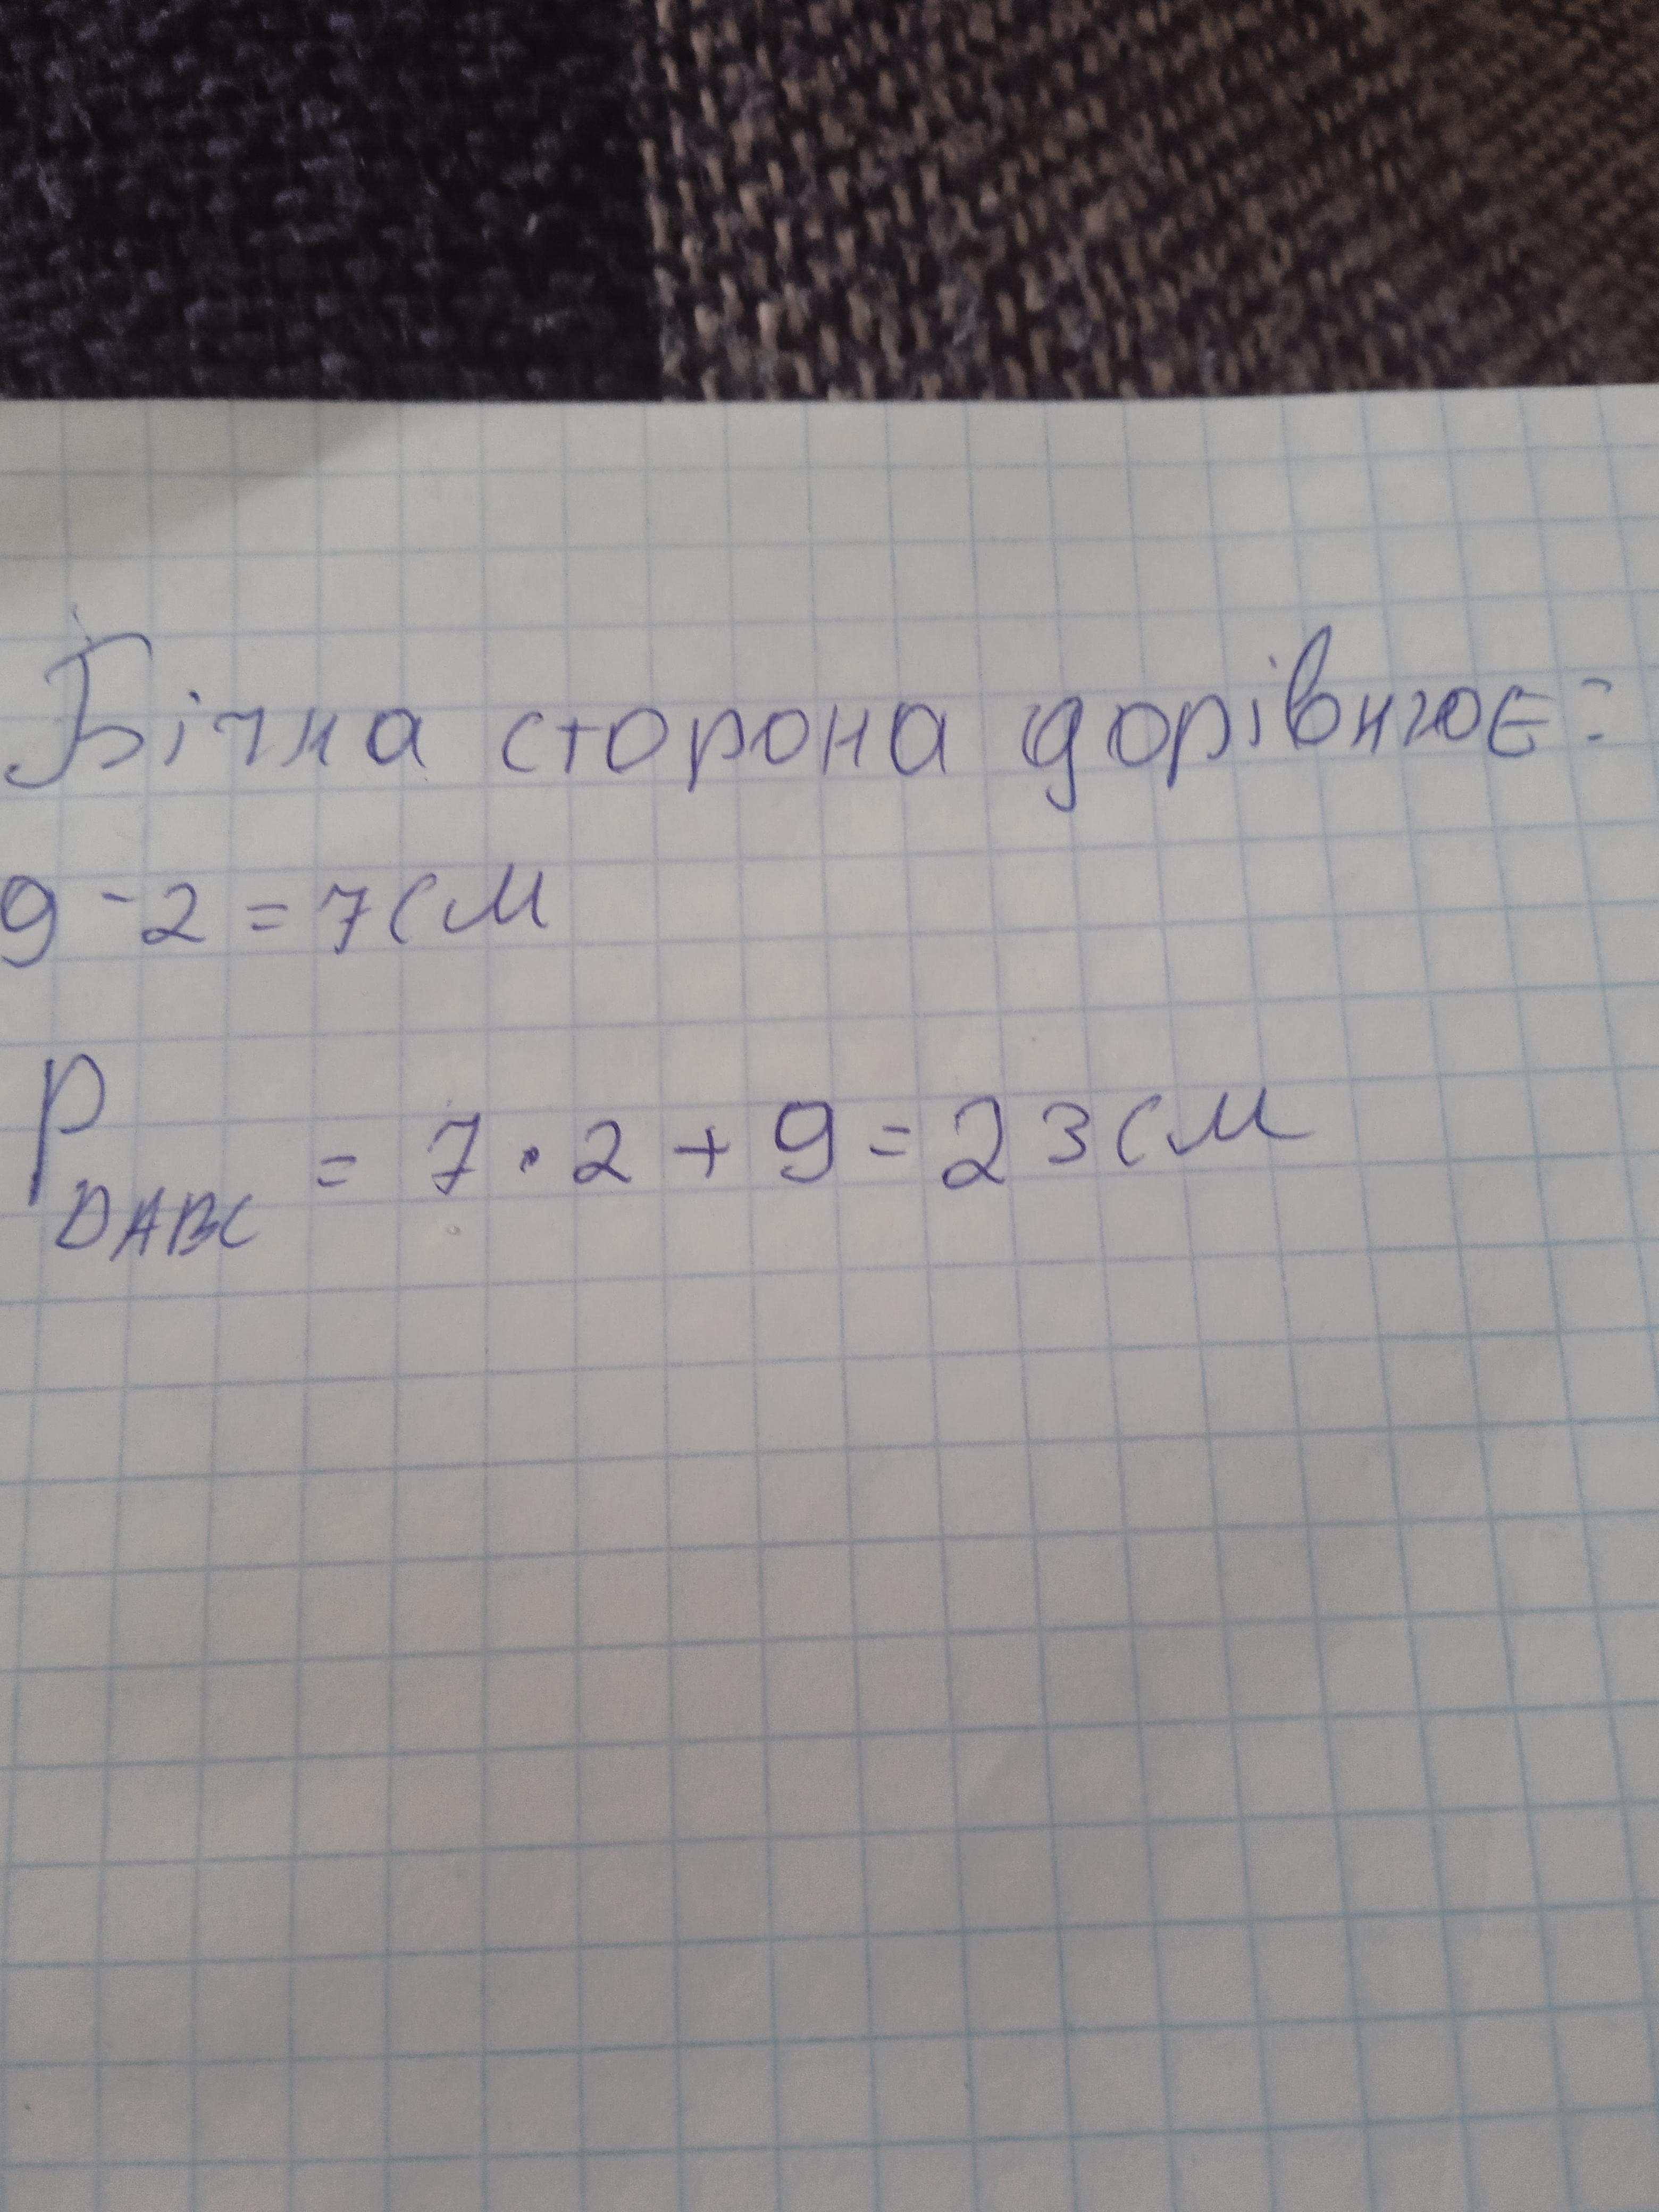 Бічна сторона дорівнює:
9 - 2 = 7 см
P DABC = 7 · 2 + 9 = 23 см